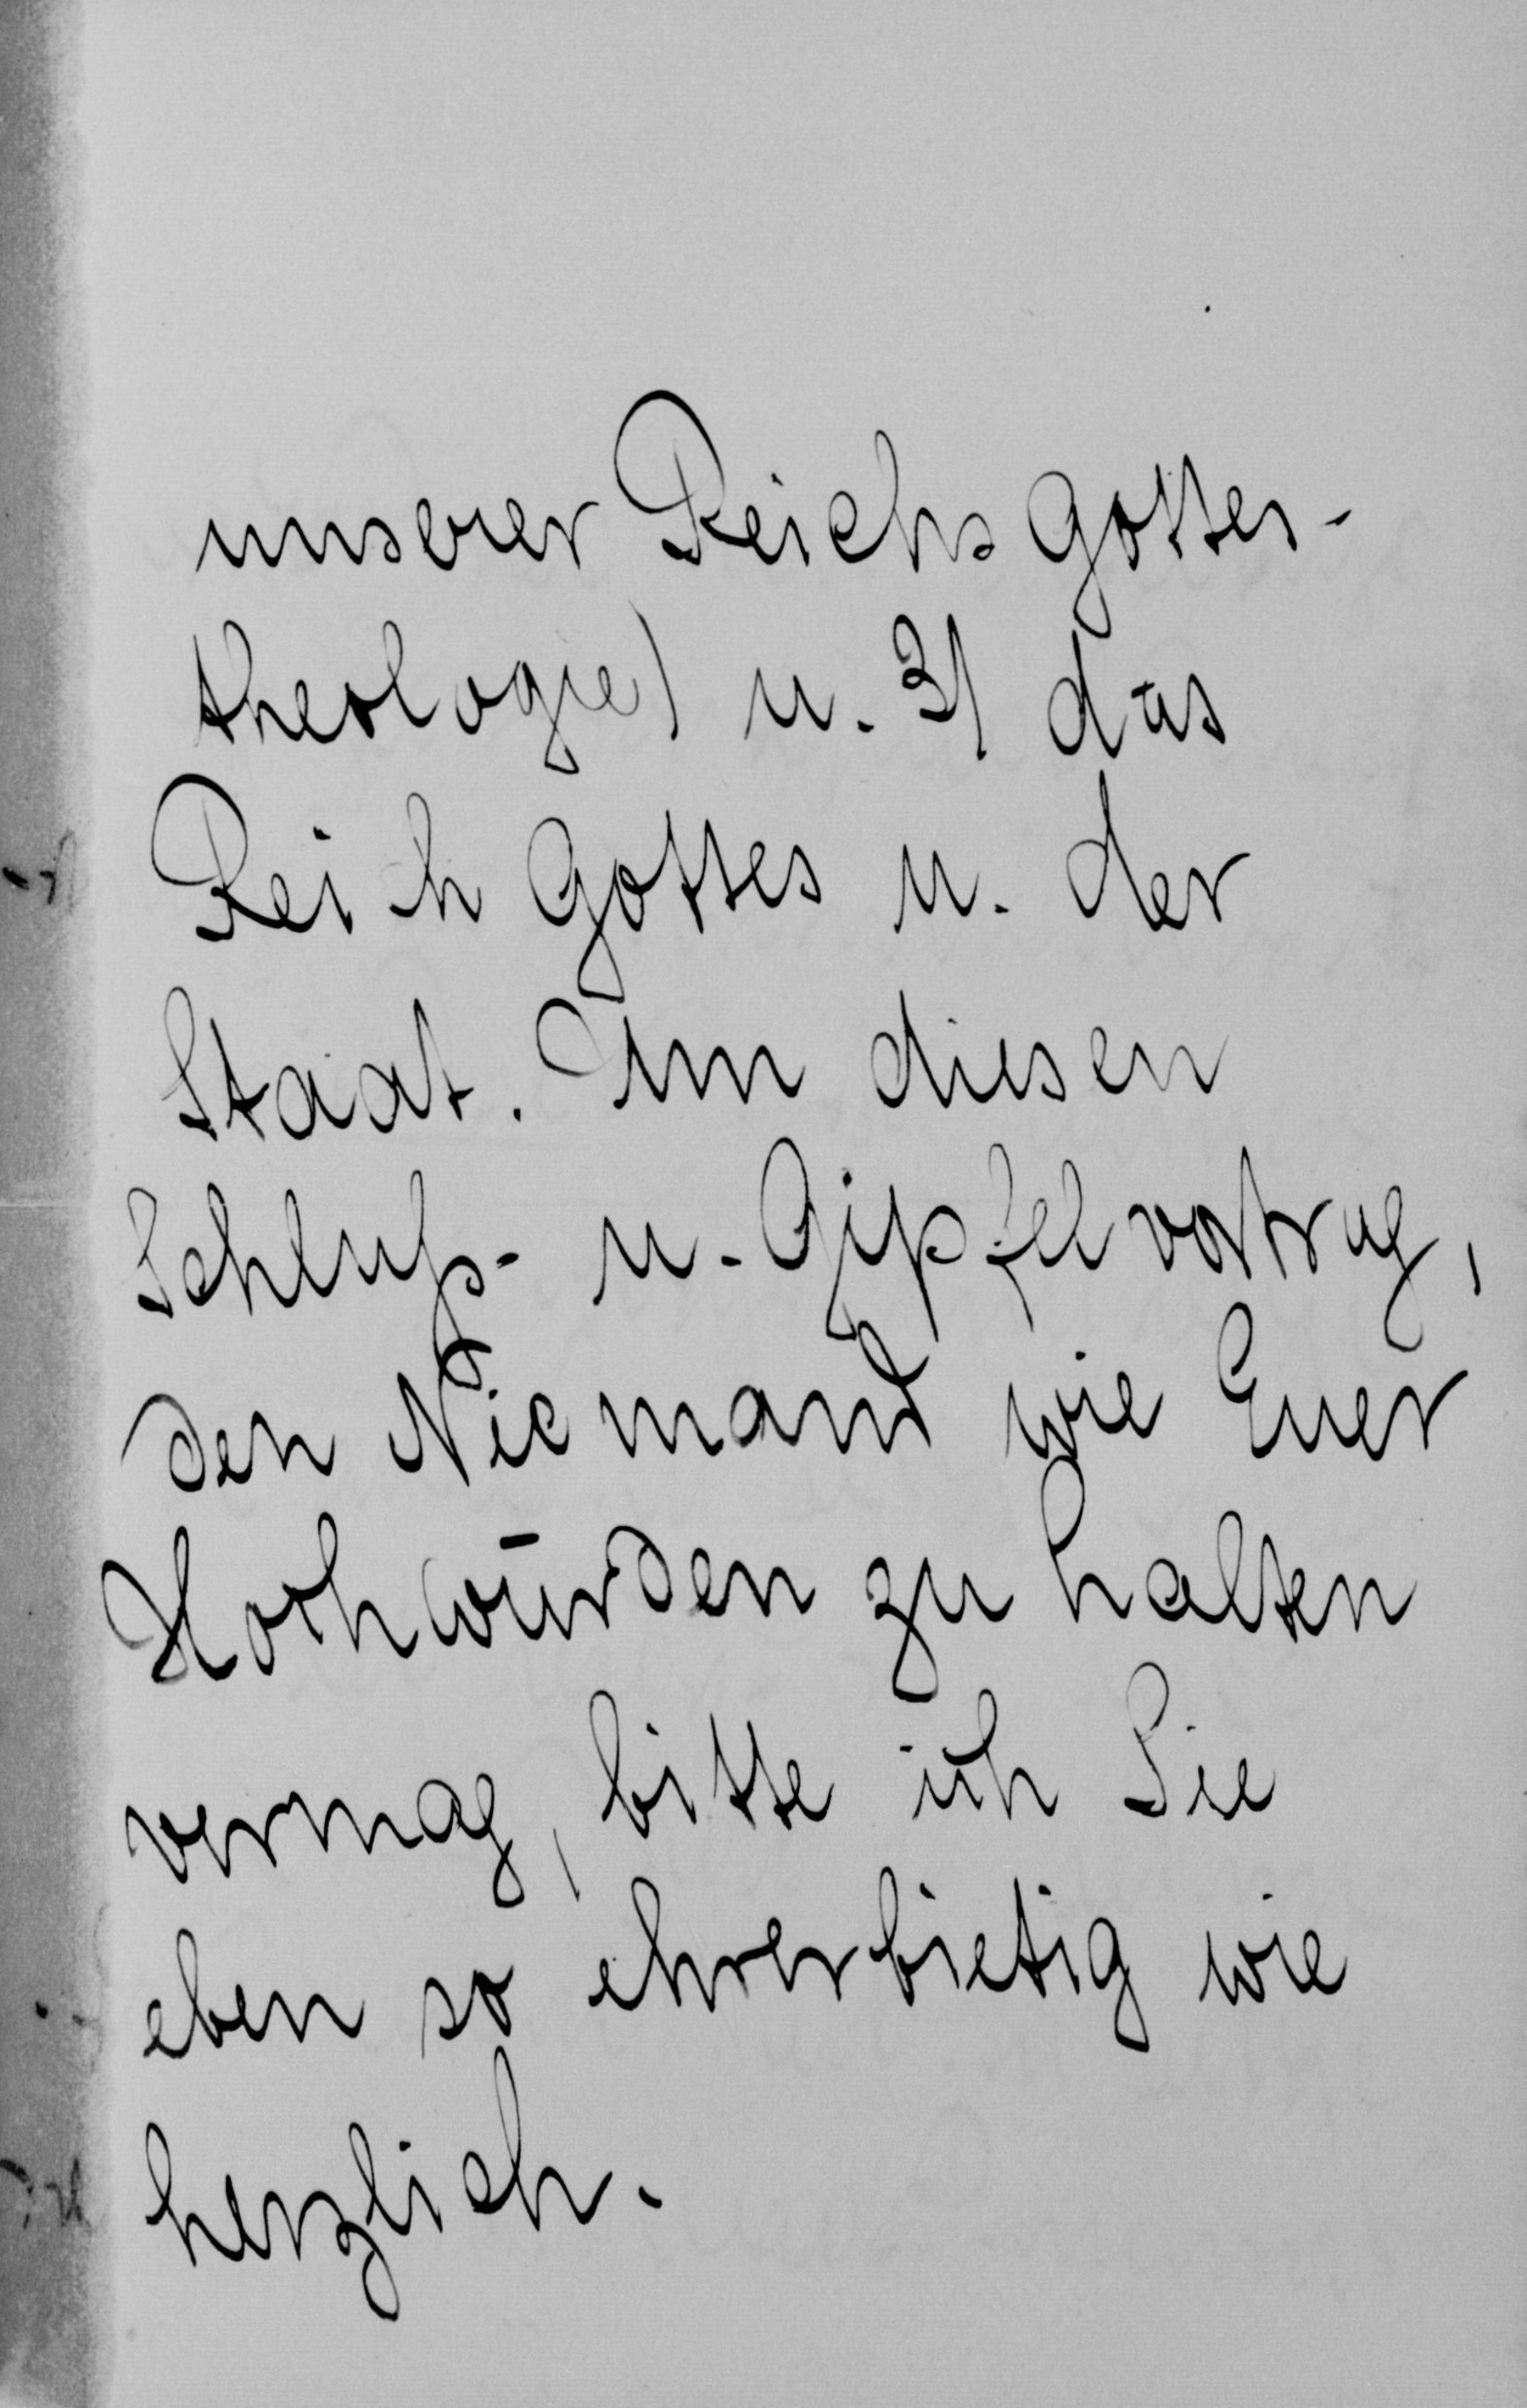 unserer Reichs Gottes-
theologie) u. 3) das
Reich Gottes u. der
Staat. Um diesen
Schluß- u. Gipfelvortrag,
den Niemand wie Euer
Hochwürden zu halten
vermag, bitte ich Sie
eben so ehrerbietig wie
herzlich.